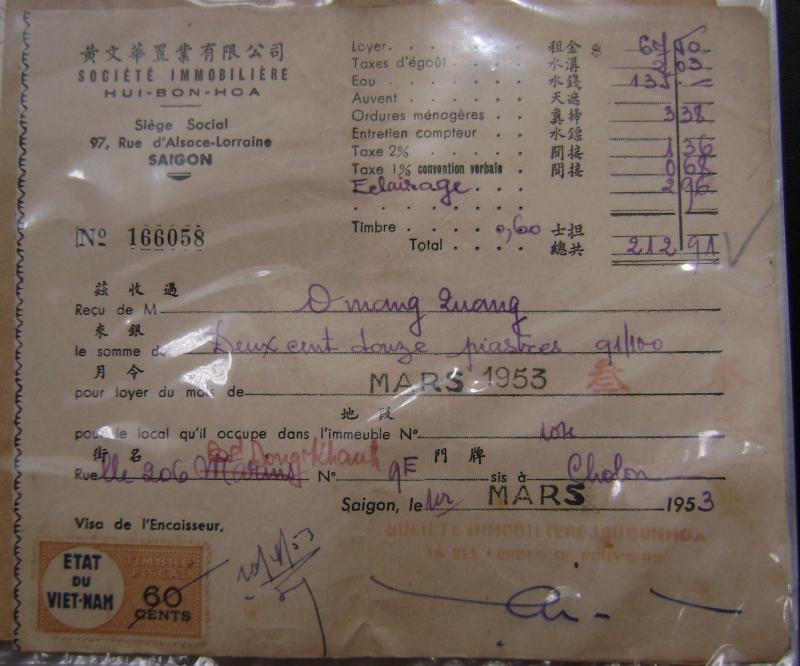 黃文華置業有限公司
SOCIÉTÉ IMMOBILIÈRE
HUI-BON-HOA
Siège Social
97, Rue d'Alsace-Lorraine
SAIGON
Nº 166058
Loyer. 租金 $ 67 10
Taxes d'égoût 水溝 2 03
Eau 水錢 135 —
Auvent 天遮
Ordures ménagères 糞掃 3 38
Entretien compteur 水鏢
Taxe 2% 間接 1 36
Taxe 1% convention verbale 間接 0 68
Eclairage 2 96
Timbre 0,60 士担
Total 總共 212 91
茲收過
Reçu de M O mang Quang
來銀
la somme de Deux cent douze piastres 91/100
月令
pour loyer du mois de MARS 1953 叁
地段
pour le local qu'il occupe dans l'immeuble Nº
街名 門牌
Bd Dong Khanh
Rue 206 Marins Nº 9E sis à Cholon
Saigon, le 1er MARS 1953
Visa de l'Encaisseur,
SOCIÉTÉ IMMOBILIÈRE HUIBONHOA
ETAT
DU
VIET-NAM
TIMBRE
FISCAL
60
CENTS